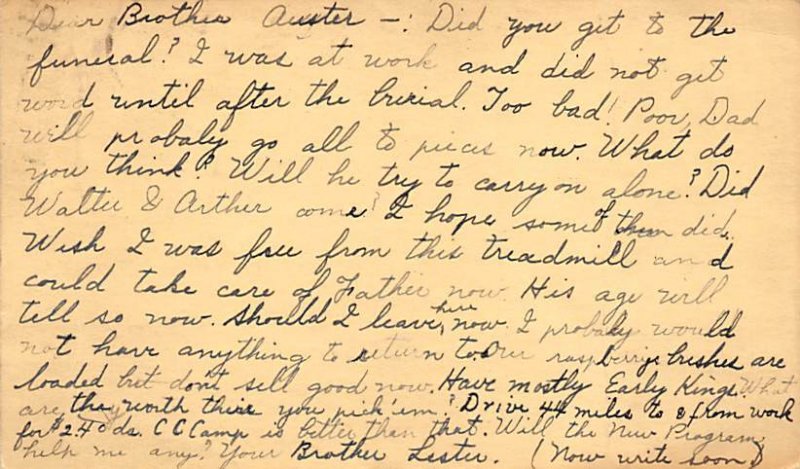 Dear Brother Auster —: Did you get to the
funeral? I was at work and did not get
word until after the burial. Too bad! Poor Dad
will probaly go all to pieces now. What do
you think? Will he try to carry on alone? Did
Walter & Arther come? I hope some of them did.
Wish I was free from this treadmill and
could take care of Father now. His age will
tell so now. Should I leave here, now I probaly would
not have anything to return to. Our raspberrys bushes are
loaded but don't sell good now. Have mostly Early Kings. What
are they worth there you pick 'em? Drive 44 miles to & from work
for 2.40 da. CC Camp is better than that. Will the New Program
help me any? Your Brother Lester. (Now write soon)